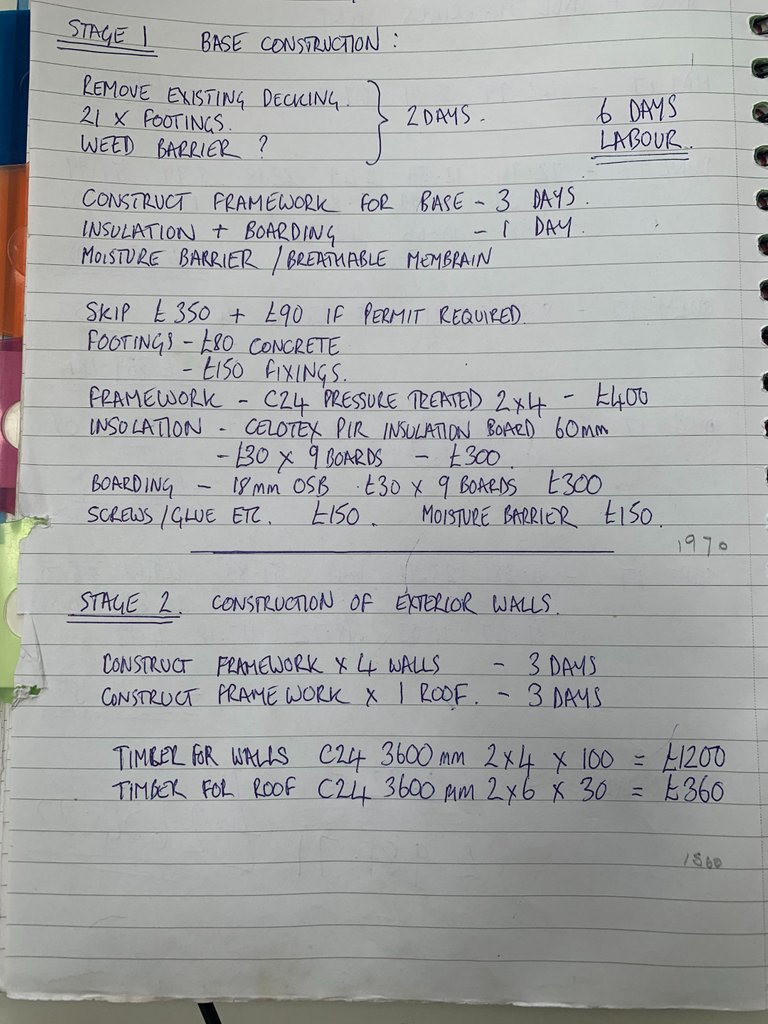 STAGE 1 BASE CONSTRUCTION :
REMOVE EXISTING DECKING.
21 X FOOTINGS. 2 DAYS. 6 DAYS
WEED BARRIER ? LABOUR.
CONSTRUCT FRAMEWORK FOR BASE - 3 DAYS.
INSULATION + BOARDING - 1 DAY.
MOISTURE BARRIER / BREATHABLE MEMBRAIN
SKIP £350 + £90 IF PERMIT REQUIRED.
FOOTINGS - £80 CONCRETE
- £150 FIXINGS.
FRAMEWORK - C24 PRESSURE TREATED 2x4 - £400
INSOLATION - CELOTEX PIR INSULATION BOARD 60mm
- £30 X 9 BOARDS - £300.
BOARDING - 18mm OSB £30 x 9 BOARDS £300
SCREWS / GLUE ETC. £150. MOISTURE BARRIER £150.
1970
STAGE 2. CONSTRUCTION OF EXTERIOR WALLS.
CONSTRUCT FRAMEWORK X 4 WALLS - 3 DAYS
CONSTRUCT FRAMEWORK X 1 ROOF. - 3 DAYS
TIMBER FOR WALLS C24 3600mm 2x4 x 100 = £1200
TIMBER FOR ROOF C24 3600mm 2x6 x 30 = £360
1560